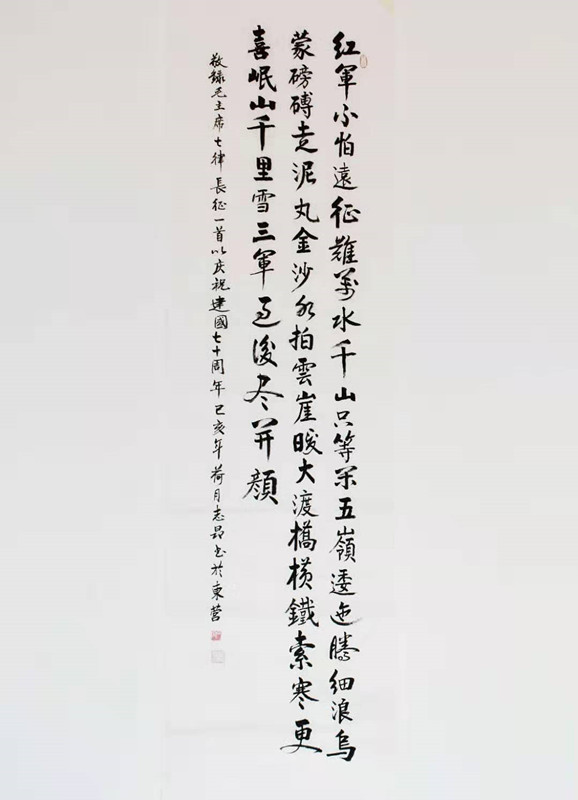 红軍不怕遠征難萬水千山只等闲五嶺逶迤騰細浪烏
蒙磅礴走泥丸金沙水拍雲崖暖大渡橋横鐵索寒更
喜岷山千里雪三軍过後尽开顔
敬録毛主席七律長征一首以庆祝建國七十周年己亥年荷月志昂书於東营